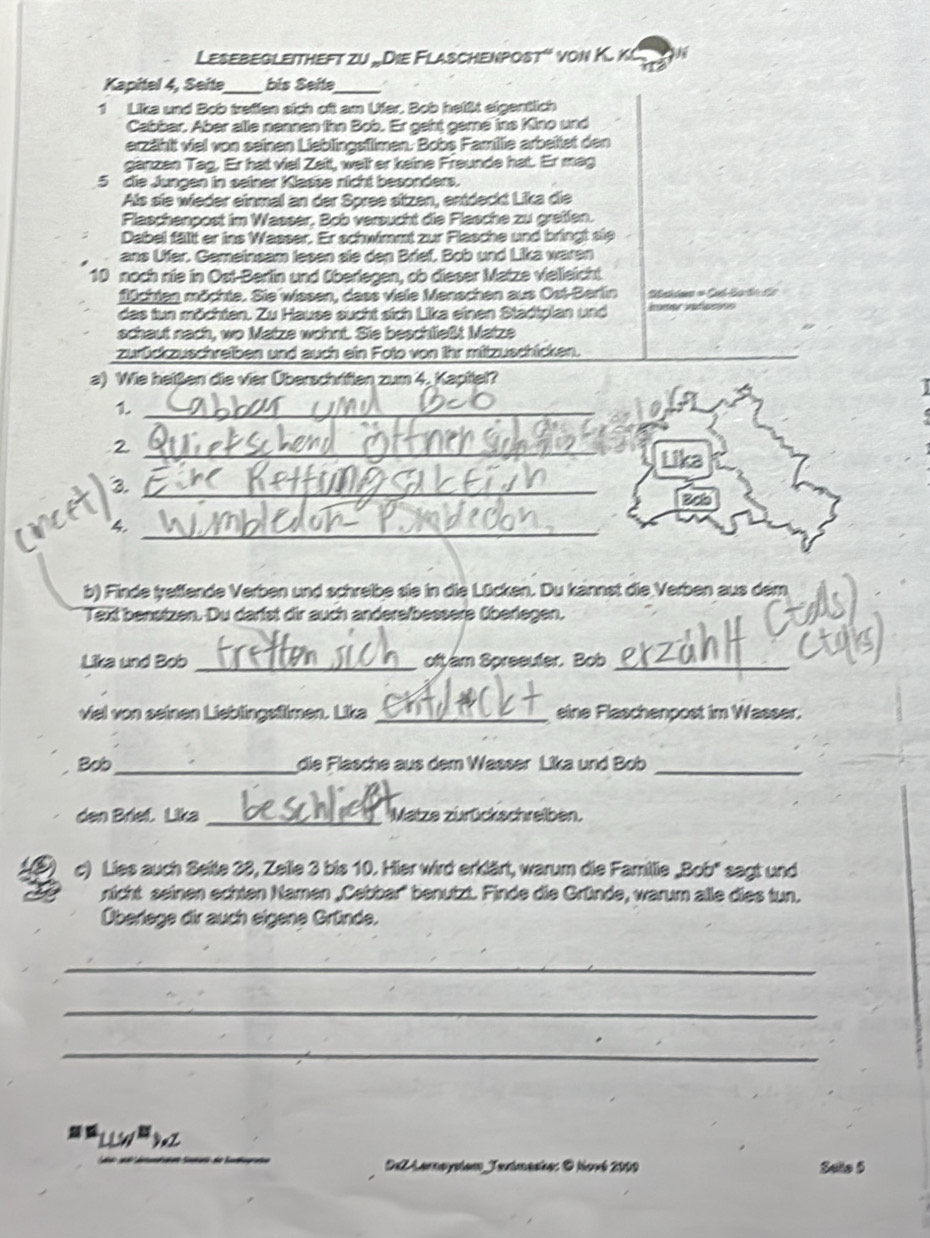 LESEBEGLEITHEFT ZU „DIE FLASCHENPOST“ VON K.
Kapitel 4, Seite____ bis Seite_____.
1 Lika und Bob treffen sich oft am Ufer. Bob heißt eigentlich
Cabbar. Aber alle nennen ihn Bob. Er geht gerne ins Kino und
erzählt viel von seinen Lieblingsfilmen. Bobs Familie arbeitet den
ganzen Tag. Er hat viel Zeit, weil er keine Freunde hat. Er mag
5 die Jungen in seiner Klasse nicht besonders.
Als sie wieder einmal an der Spree sitzen, entdeckt Lika die
Flaschenpost im Wasser. Bob versucht die Flasche zu greifen.
Dabei fällt er ins Wasser. Er schwimmt zur Flasche und bringt sie
ans Ufer. Gemeinsam lesen sie den Brief. Bob und Lika waren
10 noch nie in Ost-Berlin und überlegen, ob dieser Matze vielleicht
flüchten möchte. Sie wissen, dass viele Menschen aus Ost-Berlin
das tun möchten. Zu Hause sucht sich Lika einen Stadtplan und
flüchten = Ost-Berlin für
immer verlassen
schaut nach, wo Matze wohnt. Sie beschließt Matze
zurückzuschreiben und auch ein Foto von ihr mitzuschicken.
a) Wie heißen die vier Überschriften zum 4. Kapitel?
1. Cabbar und Bob
2. Quietschend öffnen sich die
Lika
3. Eine Rettungsaktion
Bob
4. Wimbledon - Pimbledon
b) Finde treffende Verben und schreibe sie in die Lücken. Du kannst die Verben aus dem
Text benutzen. Du darfst dir auch andere/bessere überlegen.
Lika und Bob treffen sich oft am Spreeufer. Bob erzählt
viel von seinen Lieblingsfilmen. Lika entdeckt eine Flaschenpost im Wasser.
Bob_______________die Flasche aus dem Wasser Lika und Bob ____________
den Brief. Lika beschließt Matze zurückschreiben.
c) Lies auch Seite 28, Zeile 3 bis 10. Hier wird erklärt, warum die Familie „Bob“ sagt und
nicht seinen echten Namen „Cebbar“ benutzt. Finde die Gründe, warum alle dies tun.
Überlege dir auch eigene Gründe.
Seite 5